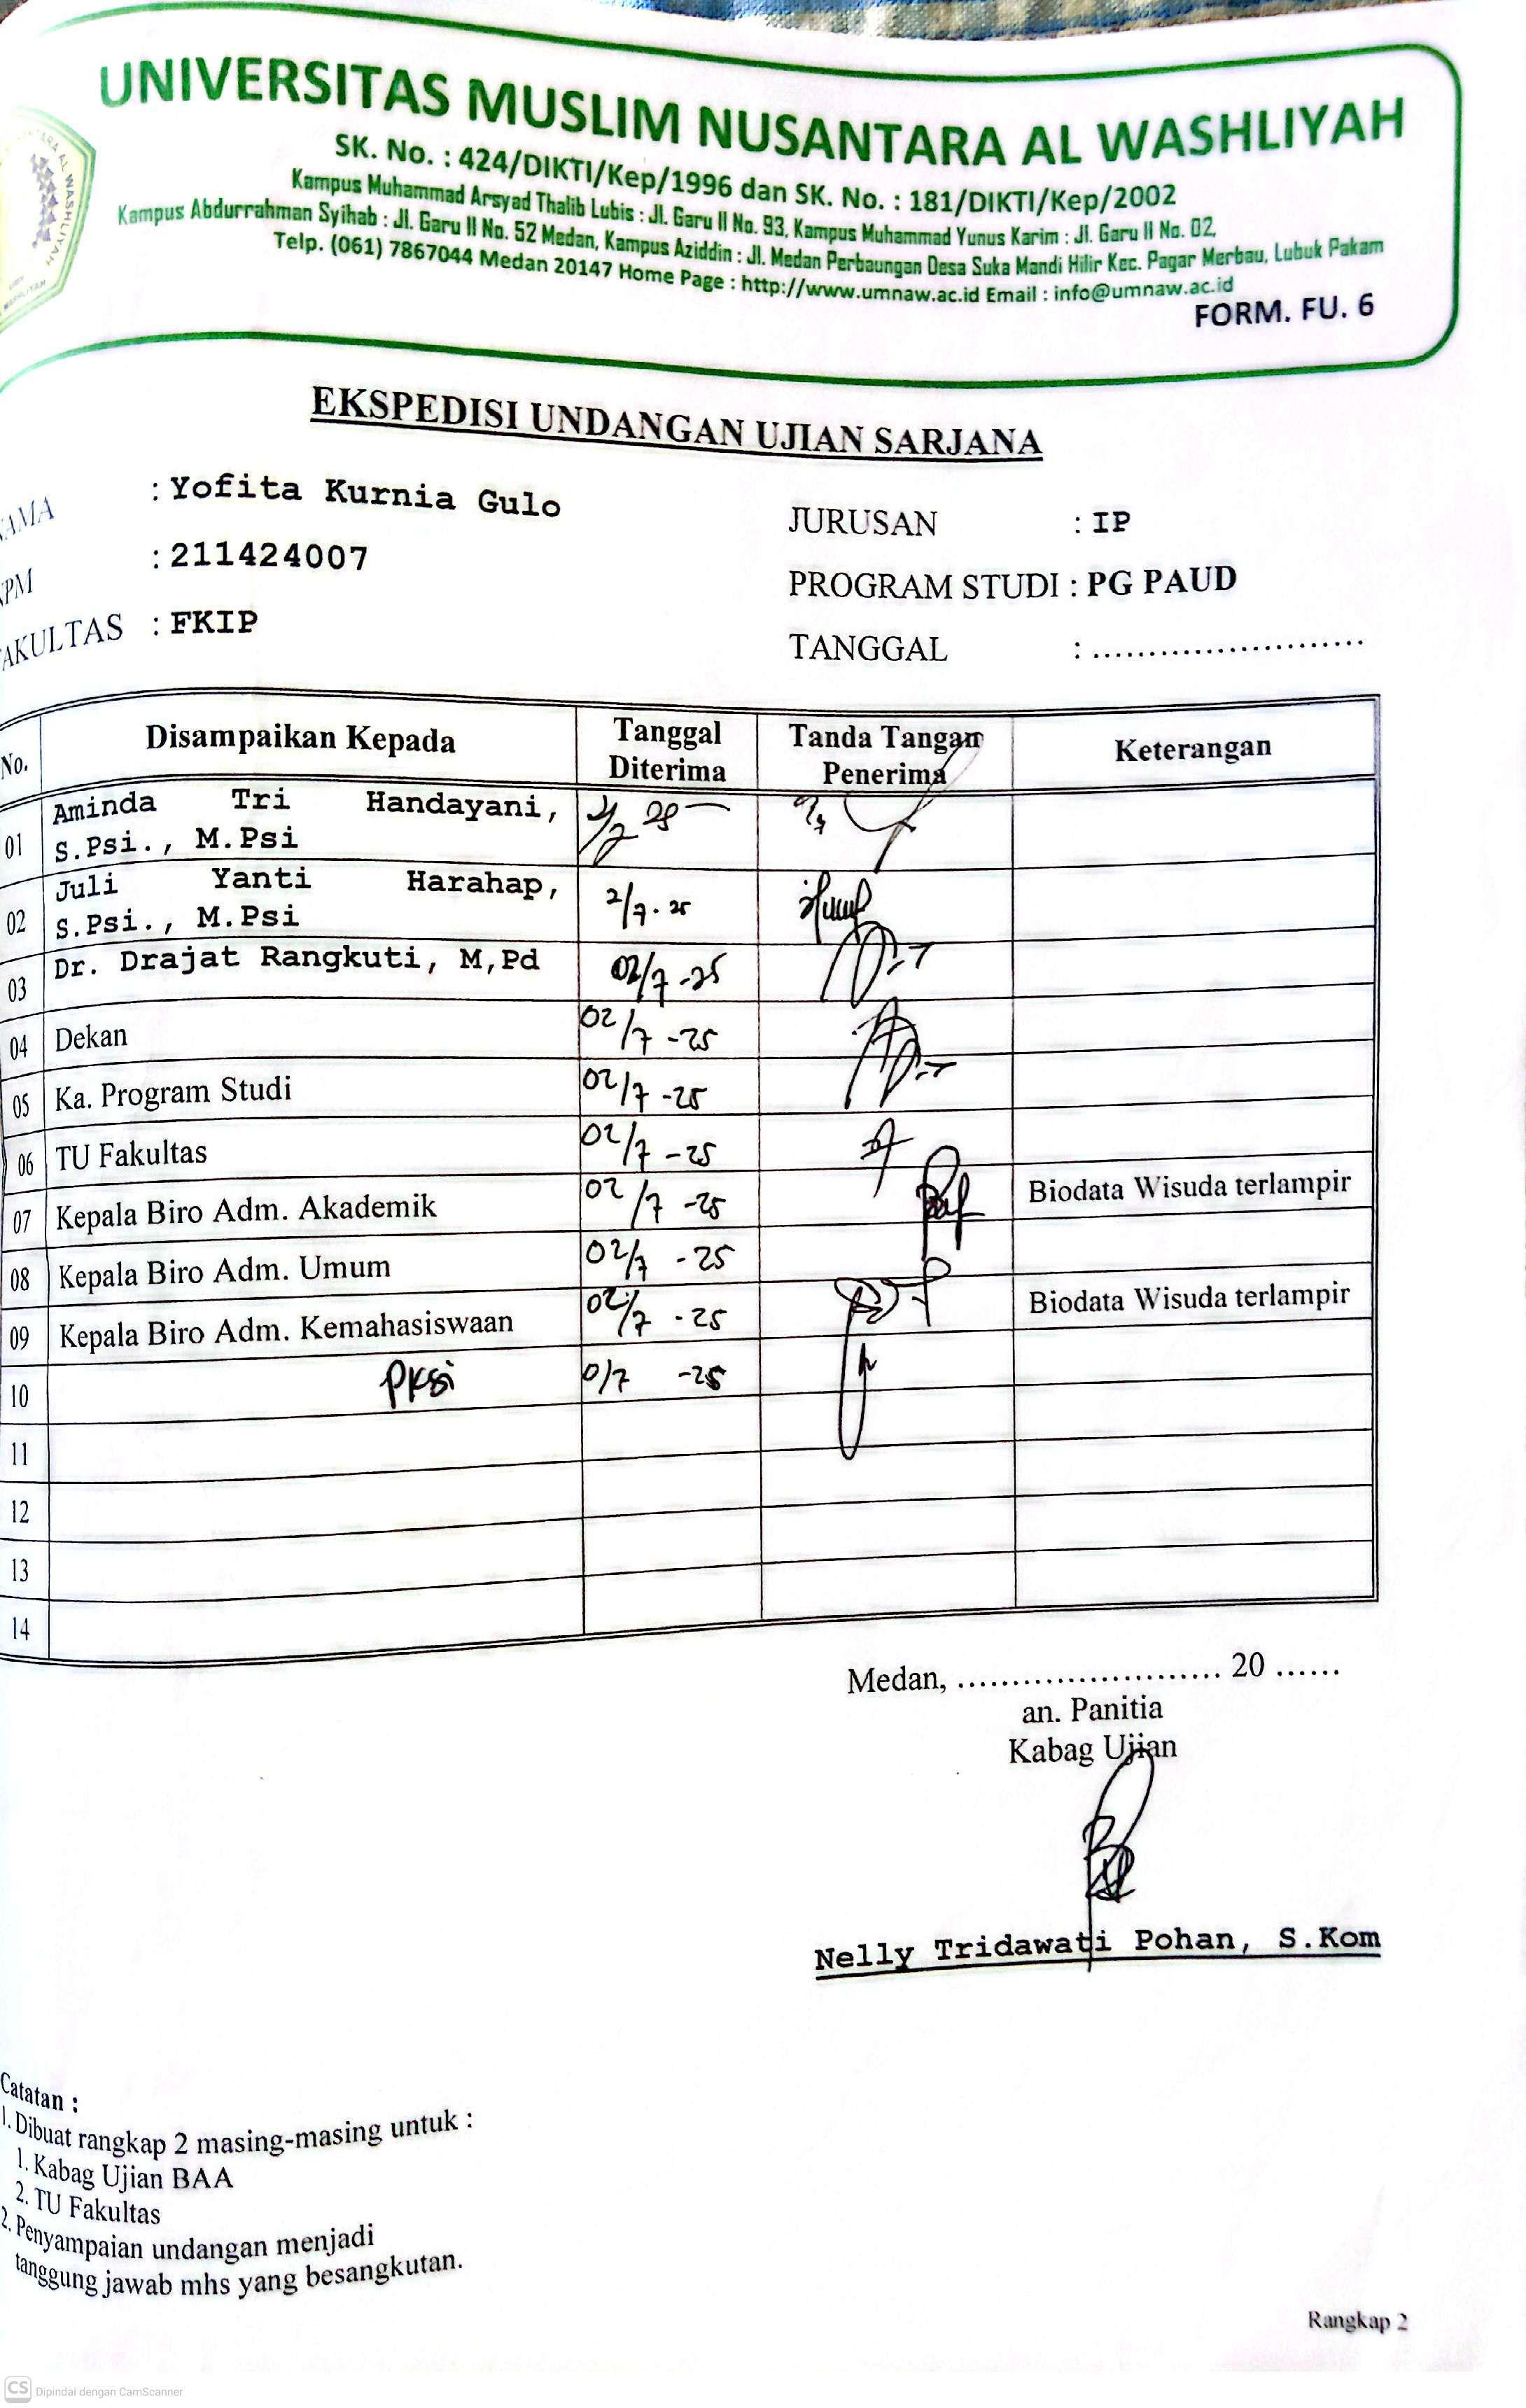 UNIVERSITAS MUSLIM NUSANTARA AL WASHLIYAH
SK. No. : 424/DIKTI/Kep/1996 dan SK. No. : 181/DIKTI/Kep/2002
Kampus Muhammad Arsyad Thalib Lubis : Jl. Garu II No. 93, Kampus Muhammad Yunus Karim : Jl. Garu II No. 02,
Kampus Abdurrahman Syihab : Jl. Garu II No. 52 Medan, Kampus Aziddin : Jl. Medan Perbaungan Desa Suka Mandi Hilir Kec. Pagar Merbau, Lubuk Pakam
Telp. (061) 7867044 Medan 20147 Home Page : http://www.umnaw.ac.id Email : info@umnaw.ac.id
FORM. FU. 6
EKSPEDISI UNDANGAN UJIAN SARJANA
AMA : Yofita Kurnia Gulo
PM : 211424007
AKULTAS : FKIP
JURUSAN : IP
PROGRAM STUDI : PG PAUD
TANGGAL : ........................
No. Disampaikan Kepada Tanggal Diterima Tanda Tangan Penerima Keterangan
01 Aminda Tri Handayani, S.Psi., M.Psi
02 Juli Yanti Harahap, S.Psi., M.Psi 2/7. 25
03 Dr. Drajat Rangkuti, M,Pd 02/7 -25
04 Dekan 02/7 -25
05 Ka. Program Studi 02/7 -25
06 TU Fakultas 02/7 -25
07 Kepala Biro Adm. Akademik 02/7 -25 Biodata Wisuda terlampir
08 Kepala Biro Adm. Umum 02/7 -25
09 Kepala Biro Adm. Kemahasiswaan 02/7 -25 Biodata Wisuda terlampir
10 PKSi 0/7 -25
11
12
13
14
Medan, ........................ 20 ......
an. Panitia
Kabag Ujian
Nelly Tridawati Pohan, S.Kom
Catatan :
1. Dibuat rangkap 2 masing-masing untuk :
1. Kabag Ujian BAA
2. TU Fakultas
2. Penyampaian undangan menjadi
tanggung jawab mhs yang besangkutan.
Rangkap 2
CS Dipindai dengan CamScanner